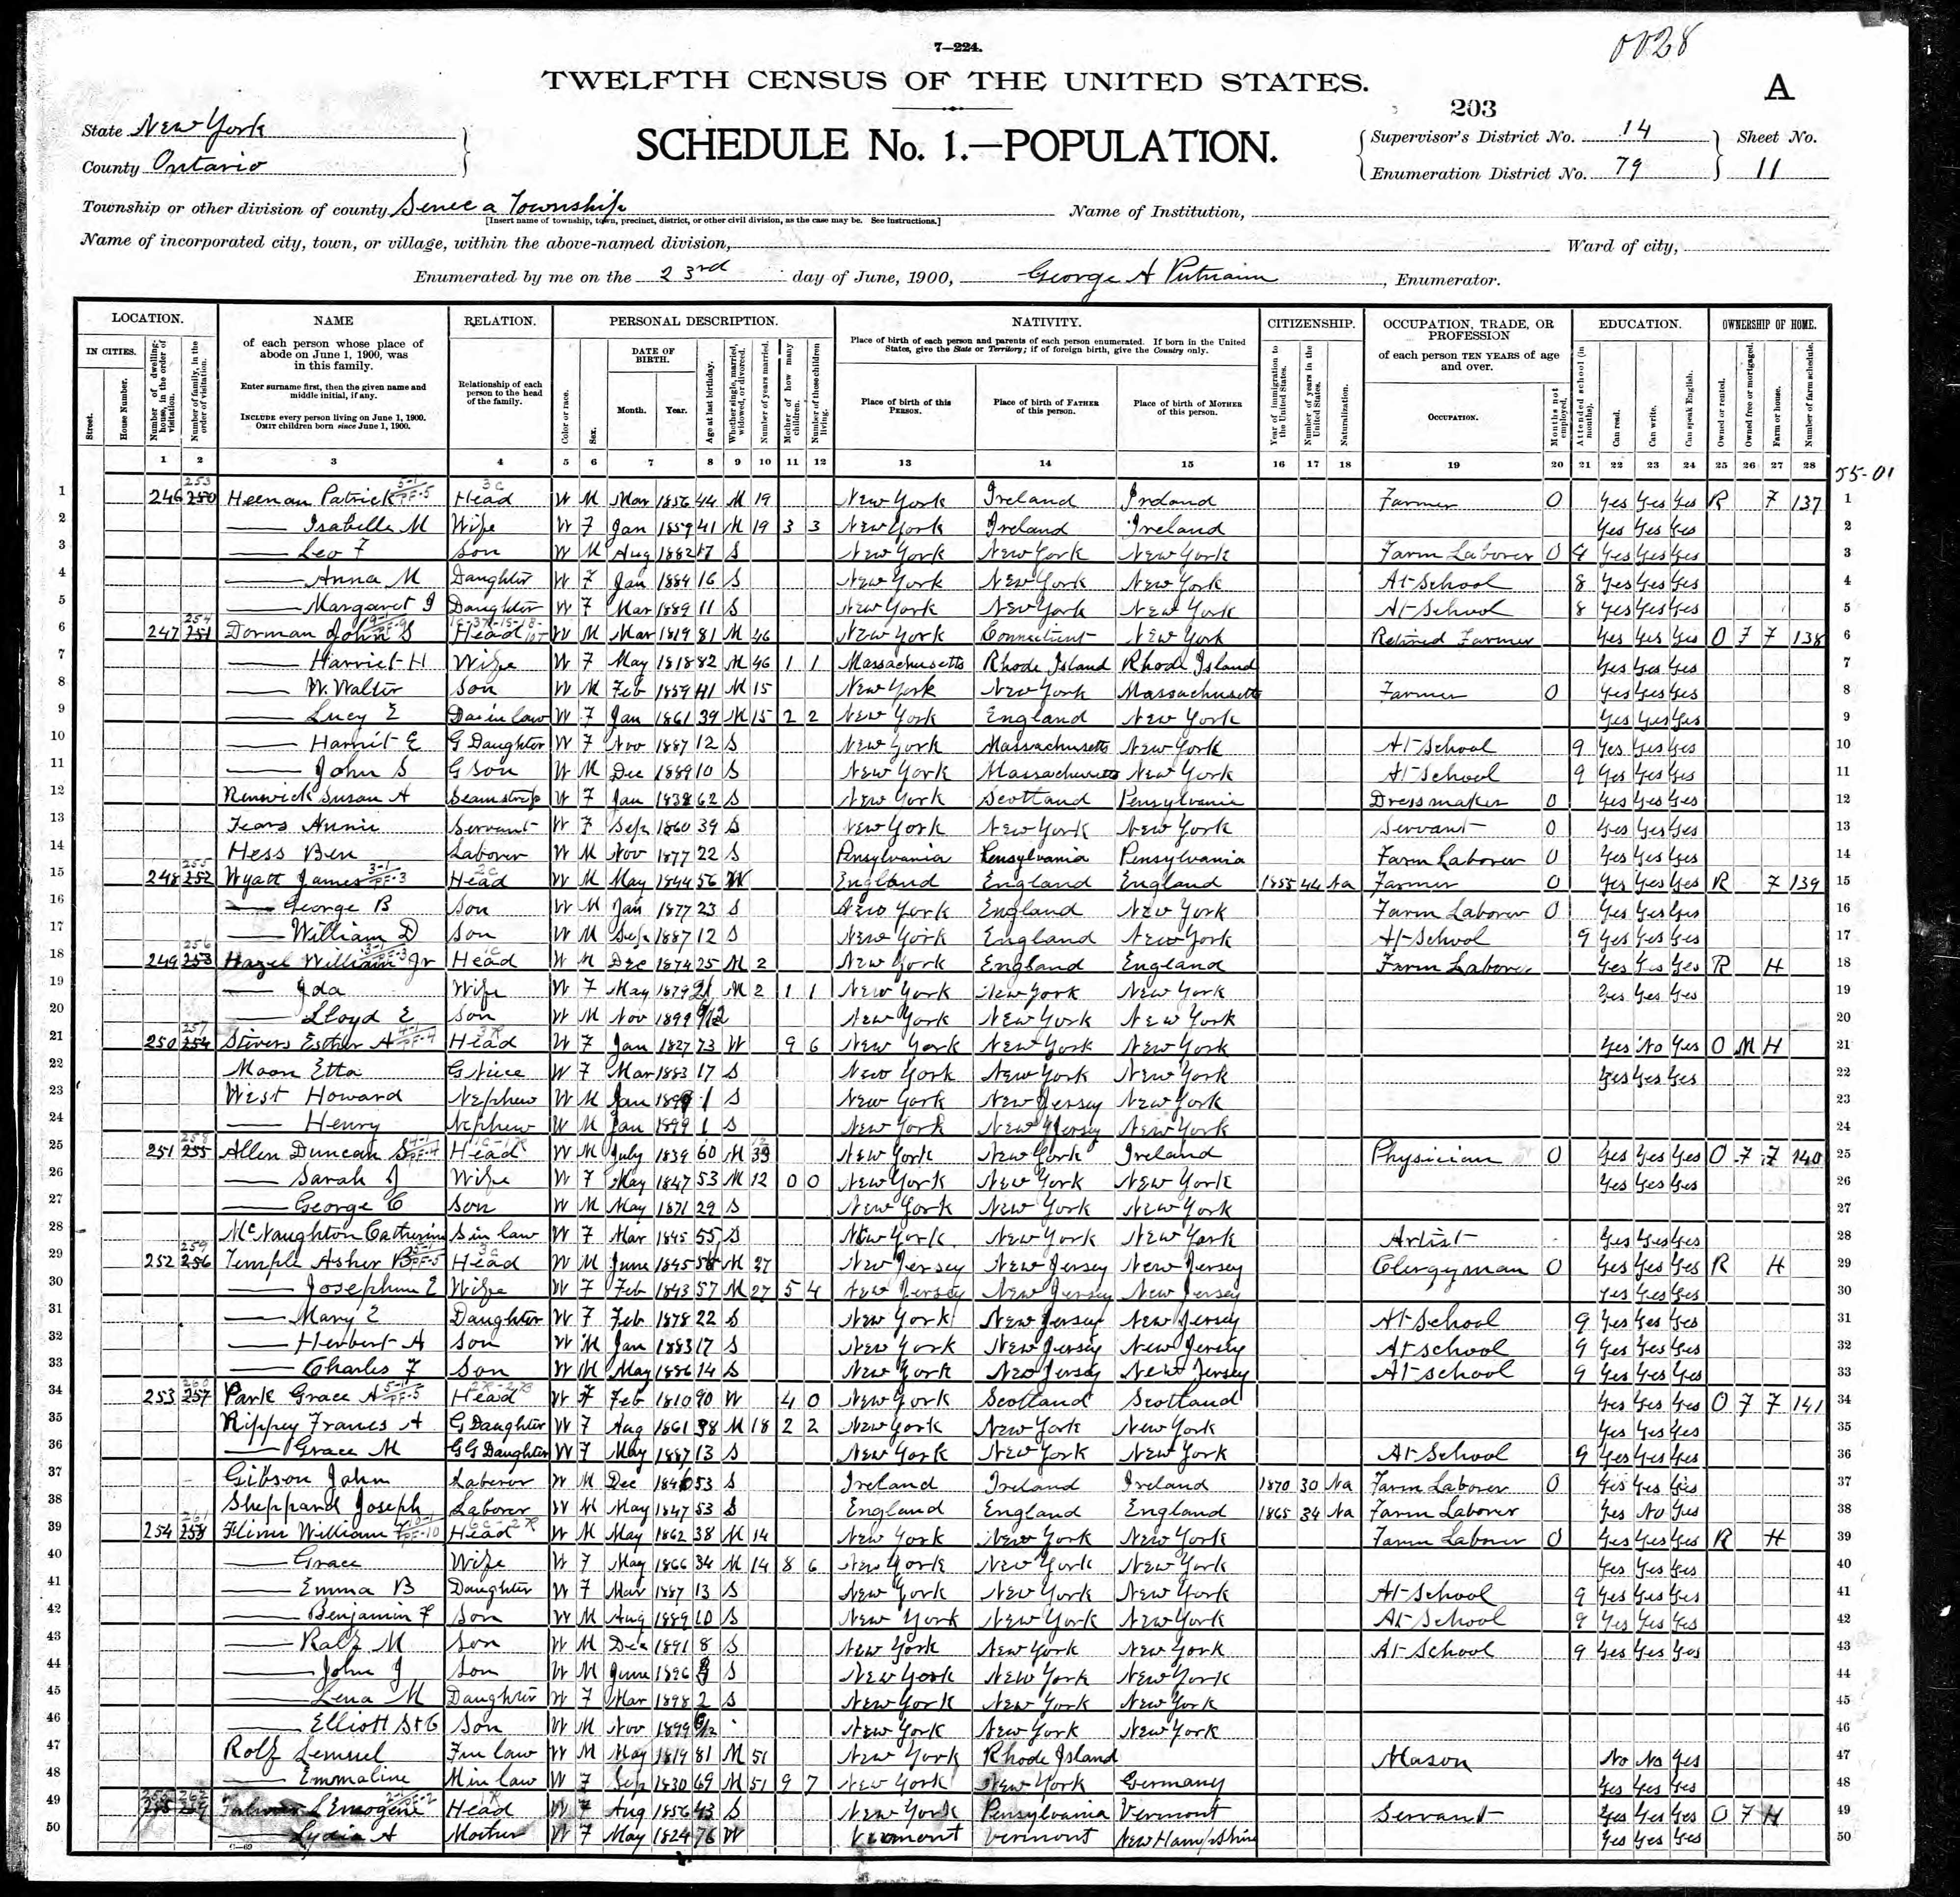 0028
7—224.
TWELFTH CENSUS OF THE UNITED STATES.
A
203
State New York
SCHEDULE No. 1.—POPULATION.
Supervisor's District No. 14
Sheet No.
County Ontario
Enumeration District No. 79
11
Township or other division of county Seneca Township
[Insert name of township, town, precinct, district, or other civil division, as the case may be. See instructions.]
Name of Institution,
Name of incorporated city, town, or village, within the above-named division,
Ward of city,
Enumerated by me on the 23rd day of June, 1900, George A Putnam, Enumerator.
LOCATION. NAME RELATION. PERSONAL DESCRIPTION. NATIVITY. CITIZENSHIP. OCCUPATION, TRADE, OR PROFESSION EDUCATION. OWNERSHIP OF HOME.
IN CITIES.
Street.
House Number.
Number of dwelling-house, in the order of visitation.
Number of family, in the order of visitation.
of each person whose place of abode on June 1, 1900, was in this family.
Enter surname first, then the given name and middle initial, if any.
INCLUDE every person living on June 1, 1900.
OMIT children born since June 1, 1900.
Relationship of each person to the head of the family.
Color or race.
Sex.
DATE OF BIRTH.
Month. Year.
Age at last birthday.
Whether single, married, widowed, or divorced.
Number of years married.
Mother of how many children.
Number of these children living.
Place of birth of each person and parents of each person enumerated. If born in the United States, give the State or Territory; if of foreign birth, give the Country only.
Place of birth of this PERSON.
Place of birth of FATHER of this person.
Place of birth of MOTHER of this person.
Year of immigration to the United States.
Number of years in the United States.
Naturalization.
of each person TEN YEARS of age and over.
OCCUPATION.
Months not employed.
Attended school (in months).
Can read.
Can write.
Can speak English.
Owned or rented.
Owned free or mortgaged.
Farm or house.
Number of farm schedule.
1 2 3 4 5 6 7 8 9 10 11 12 13 14 15 16 17 18 19 20 21 22 23 24 25 26 27 28
55-01
1 246 253 250 Heenan Patrick Head W M Mar 1856 44 M 19 New York Ireland Ireland Farmer 0 Yes Yes Yes R F 137 1
2 — Isabelle M Wife W F Jan 1859 41 M 19 3 3 New York Ireland Ireland Yes Yes Yes 2
3 — Leo F Son W M Aug 1882 17 S New York New York New York Farm Laborer 0 4 Yes Yes Yes 3
4 — Anna M Daughter W F Jan 1884 16 S New York New York New York At School 8 Yes Yes Yes 4
5 — Margaret J Daughter W F Mar 1889 11 S New York New York New York At School 8 Yes Yes Yes 5
6 247 254 251 Dorman John S Head W M Mar 1819 81 M 46 New York Connecticut New York Retired Farmer Yes Yes Yes O F F 138 6
7 — Harriet H Wife W F May 1818 82 M 46 1 1 Massachusetts Rhode Island Rhode Island Yes Yes Yes 7
8 — W. Walter Son W M Feb 1859 41 M 15 New York New York Massachusetts Farmer 0 Yes Yes Yes 8
9 — Lucy E Da in law W F Jan 1861 39 M 15 2 2 New York England New York Yes Yes Yes 9
10 — Harriet E G Daughter W F Nov 1887 12 S New York Massachusetts New York At School 9 Yes Yes Yes 10
11 — John S G Son W M Dec 1889 10 S New York Massachusetts New York At School 9 Yes Yes Yes 11
12 Renwick Susan A Seamstress W F Jan 1838 62 S New York Scotland Pensylvania Dressmaker 0 Yes Yes Yes 12
13 Tears Annie Servant W F Sep 1860 39 S New York New York New York Servant 0 Yes Yes Yes 13
14 Hess Ben Laborer W M Nov 1877 22 S Pensylvania Pensylvania Pensylvania Farm Laborer 0 Yes Yes Yes 14
15 248 255 252 Wyatt James Head W M May 1844 56 W England England England 1855 44 Na Farmer 0 Yes Yes Yes R F 139 15
16 — George B Son W M Jan 1877 23 S New York England New York Farm Laborer 0 Yes Yes Yes 16
17 — William D Son W M Sep 1887 12 S New York England New York At School 9 Yes Yes Yes 17
18 249 256 253 Hazel William Jr Head W M Dec 1874 25 M 2 New York England England Farm Laborer Yes Yes Yes R H 18
19 — Ida Wife W F May 1879 21 M 2 1 1 New York New York New York Yes Yes Yes 19
20 — Lloyd E Son W M Nov 1899 6/12 New York New York New York 20
21 250 257 254 Stivers Esther A Head W F Jan 1827 73 W 9 6 New York New York New York Yes No Yes O M H 21
22 Moon Etta G Niece W F Mar 1883 17 S New York New York New York Yes Yes Yes 22
23 West Howard Nephew W M Jan 1899 1 S New York New Jersey New York 23
24 — Henry Nephew W M Jan 1899 1 S New York New Jersey New York 24
25 251 258 255 Allen Duncan S Head W M July 1839 60 M New York New York Ireland Physician 0 Yes Yes Yes O F F 140 25
26 — Sarah J Wife W F May 1847 53 M 12 0 0 New York New York New York Yes Yes Yes 26
27 — George C Son W M May 1871 29 S New York New York New York 27
28 McNaughton Catherine S in law W F Mar 1845 55 S New York New York New York Artist Yes Yes Yes 28
29 252 259 256 Temple Asher B Head W M June 1845 M 27 New Jersey New Jersey New Jersey Clergyman 0 Yes Yes Yes R H 29
30 — Josephine E Wife W F Feb 1843 57 M 27 5 4 New Jersey New Jersey New Jersey Yes Yes Yes 30
31 — Mary E Daughter W F Feb 1878 22 S New York New Jersey New Jersey At School 9 Yes Yes Yes 31
32 — Herbert A Son W M Jan 1883 17 S New York New Jersey New Jersey At School 9 Yes Yes Yes 32
33 — Charles F Son W M May 1886 14 S New York New Jersey New Jersey At School 9 Yes Yes Yes 33
34 253 260 257 Park Grace A Head W F Feb 1810 90 W 4 0 New York Scotland Scotland Yes Yes Yes O F F 141 34
35 Rippey Frances A G Daughter W F Aug 1861 38 M 18 2 2 New York New York New York Yes Yes Yes 35
36 — Grace M G G Daughter W F May 1887 13 S New York New York New York At School 9 Yes Yes Yes 36
37 Gibson John Laborer W M Dec 1846 53 S Ireland Ireland Ireland 1870 30 Na Farm Laborer 0 Yes Yes Yes 37
38 Sheppard Joseph Laborer W M May 1847 53 S England England England 1865 34 Na Farm Laborer Yes No Yes 38
39 254 261 258 Flinn William F Head W M May 1862 38 M 14 New York New York New York Farm Laborer 0 Yes Yes Yes R H 39
40 — Grace Wife W F May 1866 34 M 14 8 6 New York New York New York Yes Yes Yes 40
41 — Emma B Daughter W F Mar 1887 13 S New York New York New York At School 9 Yes Yes Yes 41
42 — Benjamin F Son W M Aug 1889 10 S New York New York New York At School 9 Yes Yes Yes 42
43 — Ralf M Son W M Dec 1891 8 S New York New York New York At School 9 Yes Yes Yes 43
44 — John J Son W M June 1896 3 S New York New York New York 44
45 — Lena M Daughter W F Mar 1898 2 S New York New York New York 45
46 — Elliott St C Son W M Nov 1899 6/12 New York New York New York 46
47 Rolf Lemuel F in law W M May 1819 81 M 51 New York Rhode Island Mason No No Yes 47
48 — Emmaline M in law W F Sep 1830 69 M 51 9 7 New York New York Germany Yes Yes Yes 48
49 262 L Emogene Head W F Aug 1856 43 S New York Pensylvania Vermont Servant Yes Yes Yes O F H 49
50 — Lydia A Mother W F May 1824 76 W Vermont Vermont New Hampshire Yes Yes Yes 50